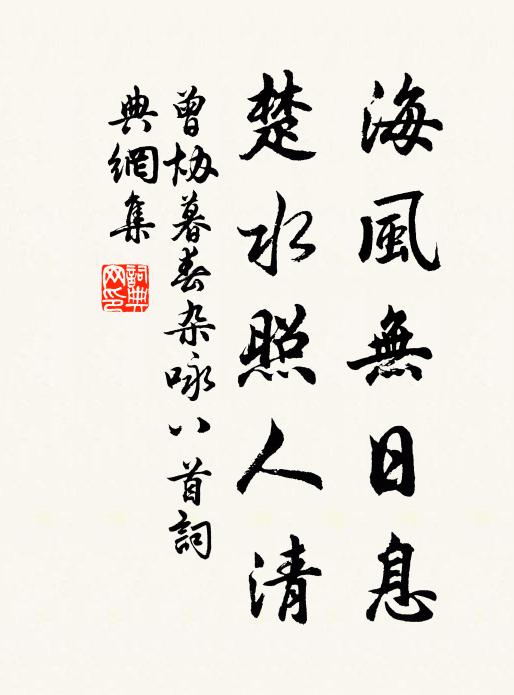 海風無日息
楚水照人清
曾協暮春杂咏八首詞
典網集
詞典
网印